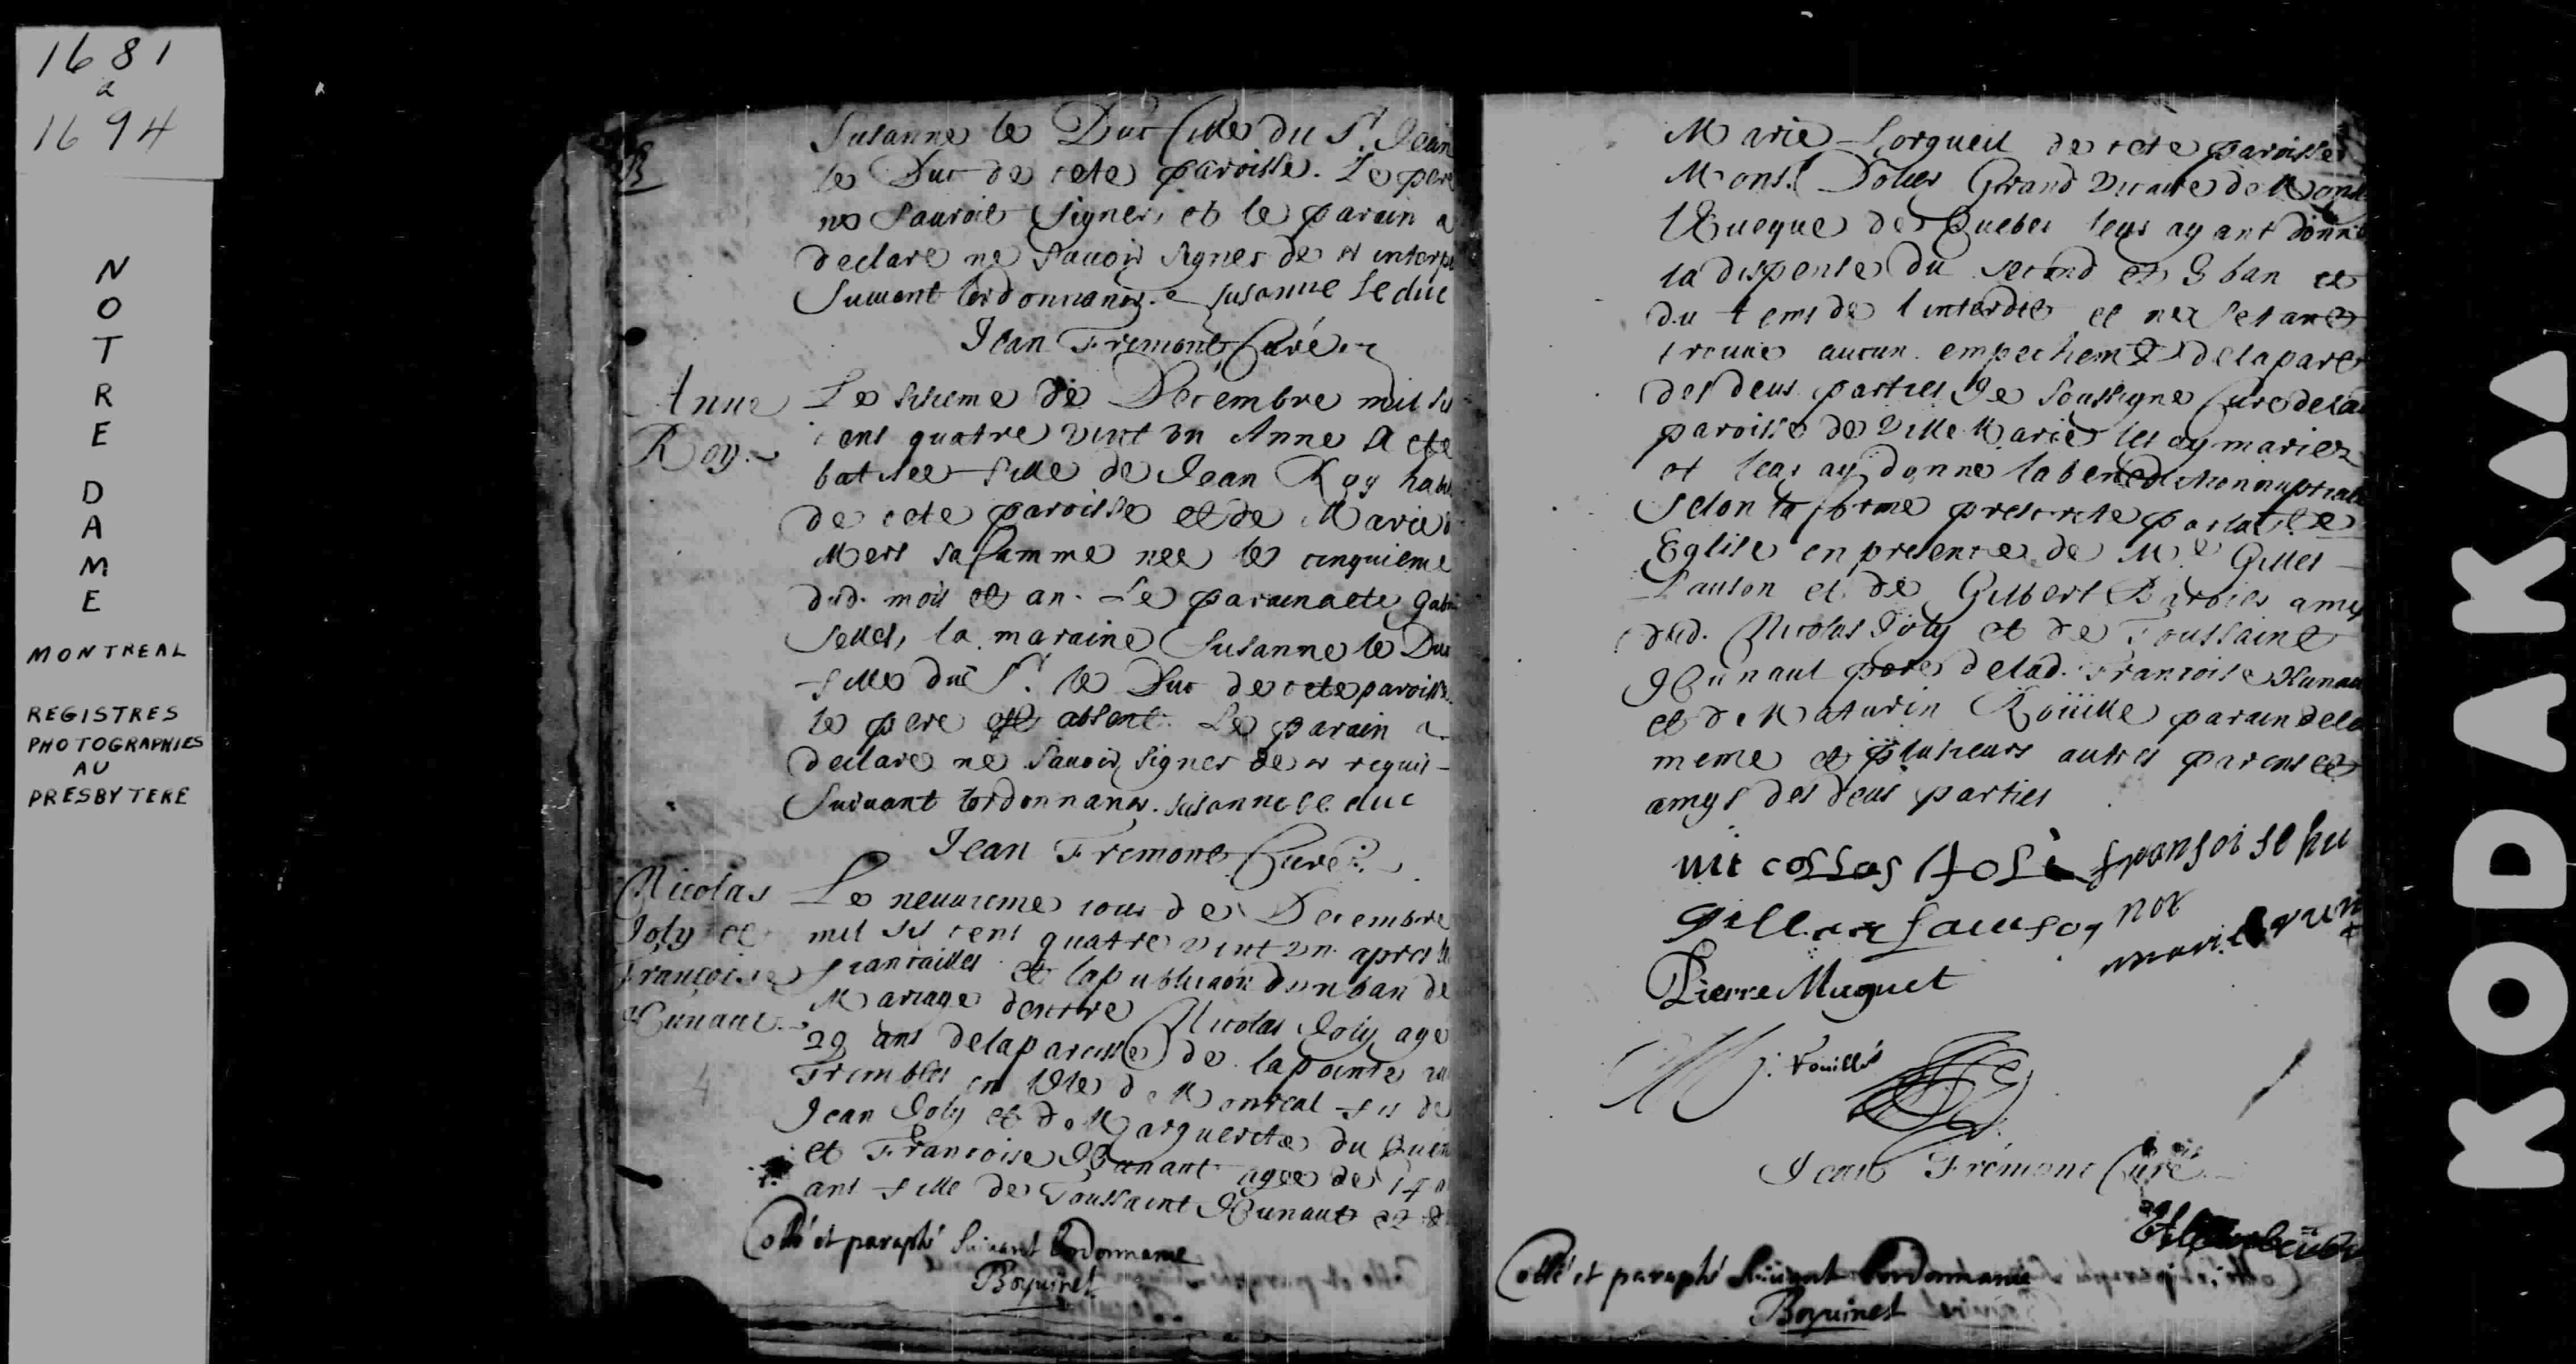 1681
a
1694
NOTRE DAME
MONTREAL
REGISTRES
PHOTOGRAPHIES
AU
PRESBYTERE
Susanne le Duc fille du Sr. Jean
le Duc de cete paroisse. Le pere
ne sauroit signer, et le parain a
declare ne savoir signer de ce interpe
suivant lordonnance. Susanne Leduc
Jean Fremont Curé
Anne
Roy.
Le sisieme de Decembre mil sis
cens quatre vint un Anne a ete
batisee fille de Jean Roy habi
de cete paroisse et de Marie
Mers sa famme nee le cinquieme
dud. mois et an. Le parain a ete Gabri
Selles, la maraine Susanne le Duc
fille du Sr. le Duc de cete paroisse.
le pere est absent. Le parain a
declare ne savoir signer de ce requis
suivant lordonnance. Susanne le duc
Jean Fremont Curé.
Nicolas
Joly et
Françoise
Hunaut.
4
Le neuvieme jour de Decembre
mil sis cens quatre vint un apres le
fiançailles et la publicaon dun ban de
Mariage dentre Nicolas Joly age
29 ans de la paroisse de la pointe au
Trembles en lisle de Montreal fis de
Jean Joly et de Marguerite du
et Françoise Hunaut agee de 14
ans fille de Toussaint Hunaut et d
Collé et paraphé suivant Lordonnance
Boyuinet
Marie Lorgueil de cete paroisse
Monsr. Dolier Grand Vicaire de Mons
lEveque de Quebec leur ayant donné
la dispense du second et 3 ban et
du tems de linterdit et ne setant
trouve aucun empechemt de la part
des deus parties Je soussigne Curé de la
paroisse de Ville Marie les ay mariez
et leur ay donne la benediction nuptiale
selon la forme prescrite par la Ste
Eglise en presence de Me Gilles
Lauson et de Gilbert Barbier amys
dud. Nicolas Joly et de Toussaint
Hunaut pere de lad. Françoise Hunau
et de Maturin Roüille parain dela
meme et plusieurs autres parens et
amys des deus parties
nicollas joli franſoise hu
not
gilles lauson
Pierre Muguet
J: Rouillé
Jean Fremont Curé
Collé et paraphé suivant Lordonnance
Boyuinet
KODAK